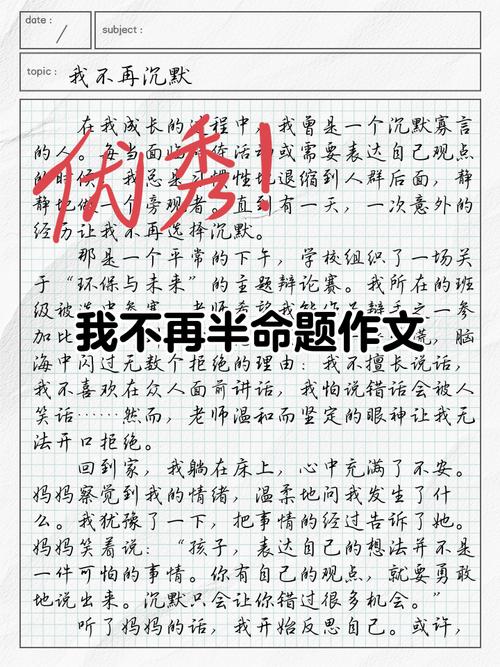 date :
subject:
topic : 我不再沉默
在我成长的过程中，我曾是一个沉默寡言
的人。每当面临集体活动或需要表达自己观点
的时候，我总是习惯性地退缩到人群后面，静
静地做一个旁观者。直到有一天，一次意外的
经历让我不再选择沉默。
优秀！
那是一个平常的下午，学校组织了一场关
于“环保与未来”的主题辩论赛。我所在的班
级被选中参赛，老师希望我能作为辩手之一参
加比
我不再半命题作文
慌，脑
海中闪过无数个拒绝的理由：我不擅长说话，
我不喜欢在众人面前讲话，我怕说错话会被人
笑话……然而，老师温和而坚定的眼神让我无
法开口拒绝。
回到家，我躺在床上，心中充满了不安。
妈妈察觉到我的情绪，温柔地问我发生了什
么。我犹豫了一下，把事情的经过告诉了她。
妈妈笑着说：“孩子，表达自己的想法并不是
一件可怕的事情。你有自己的观点，就要勇敢
地说出来。沉默只会让你错过很多机会。”
听了妈妈的话，我开始反思自己。或许，